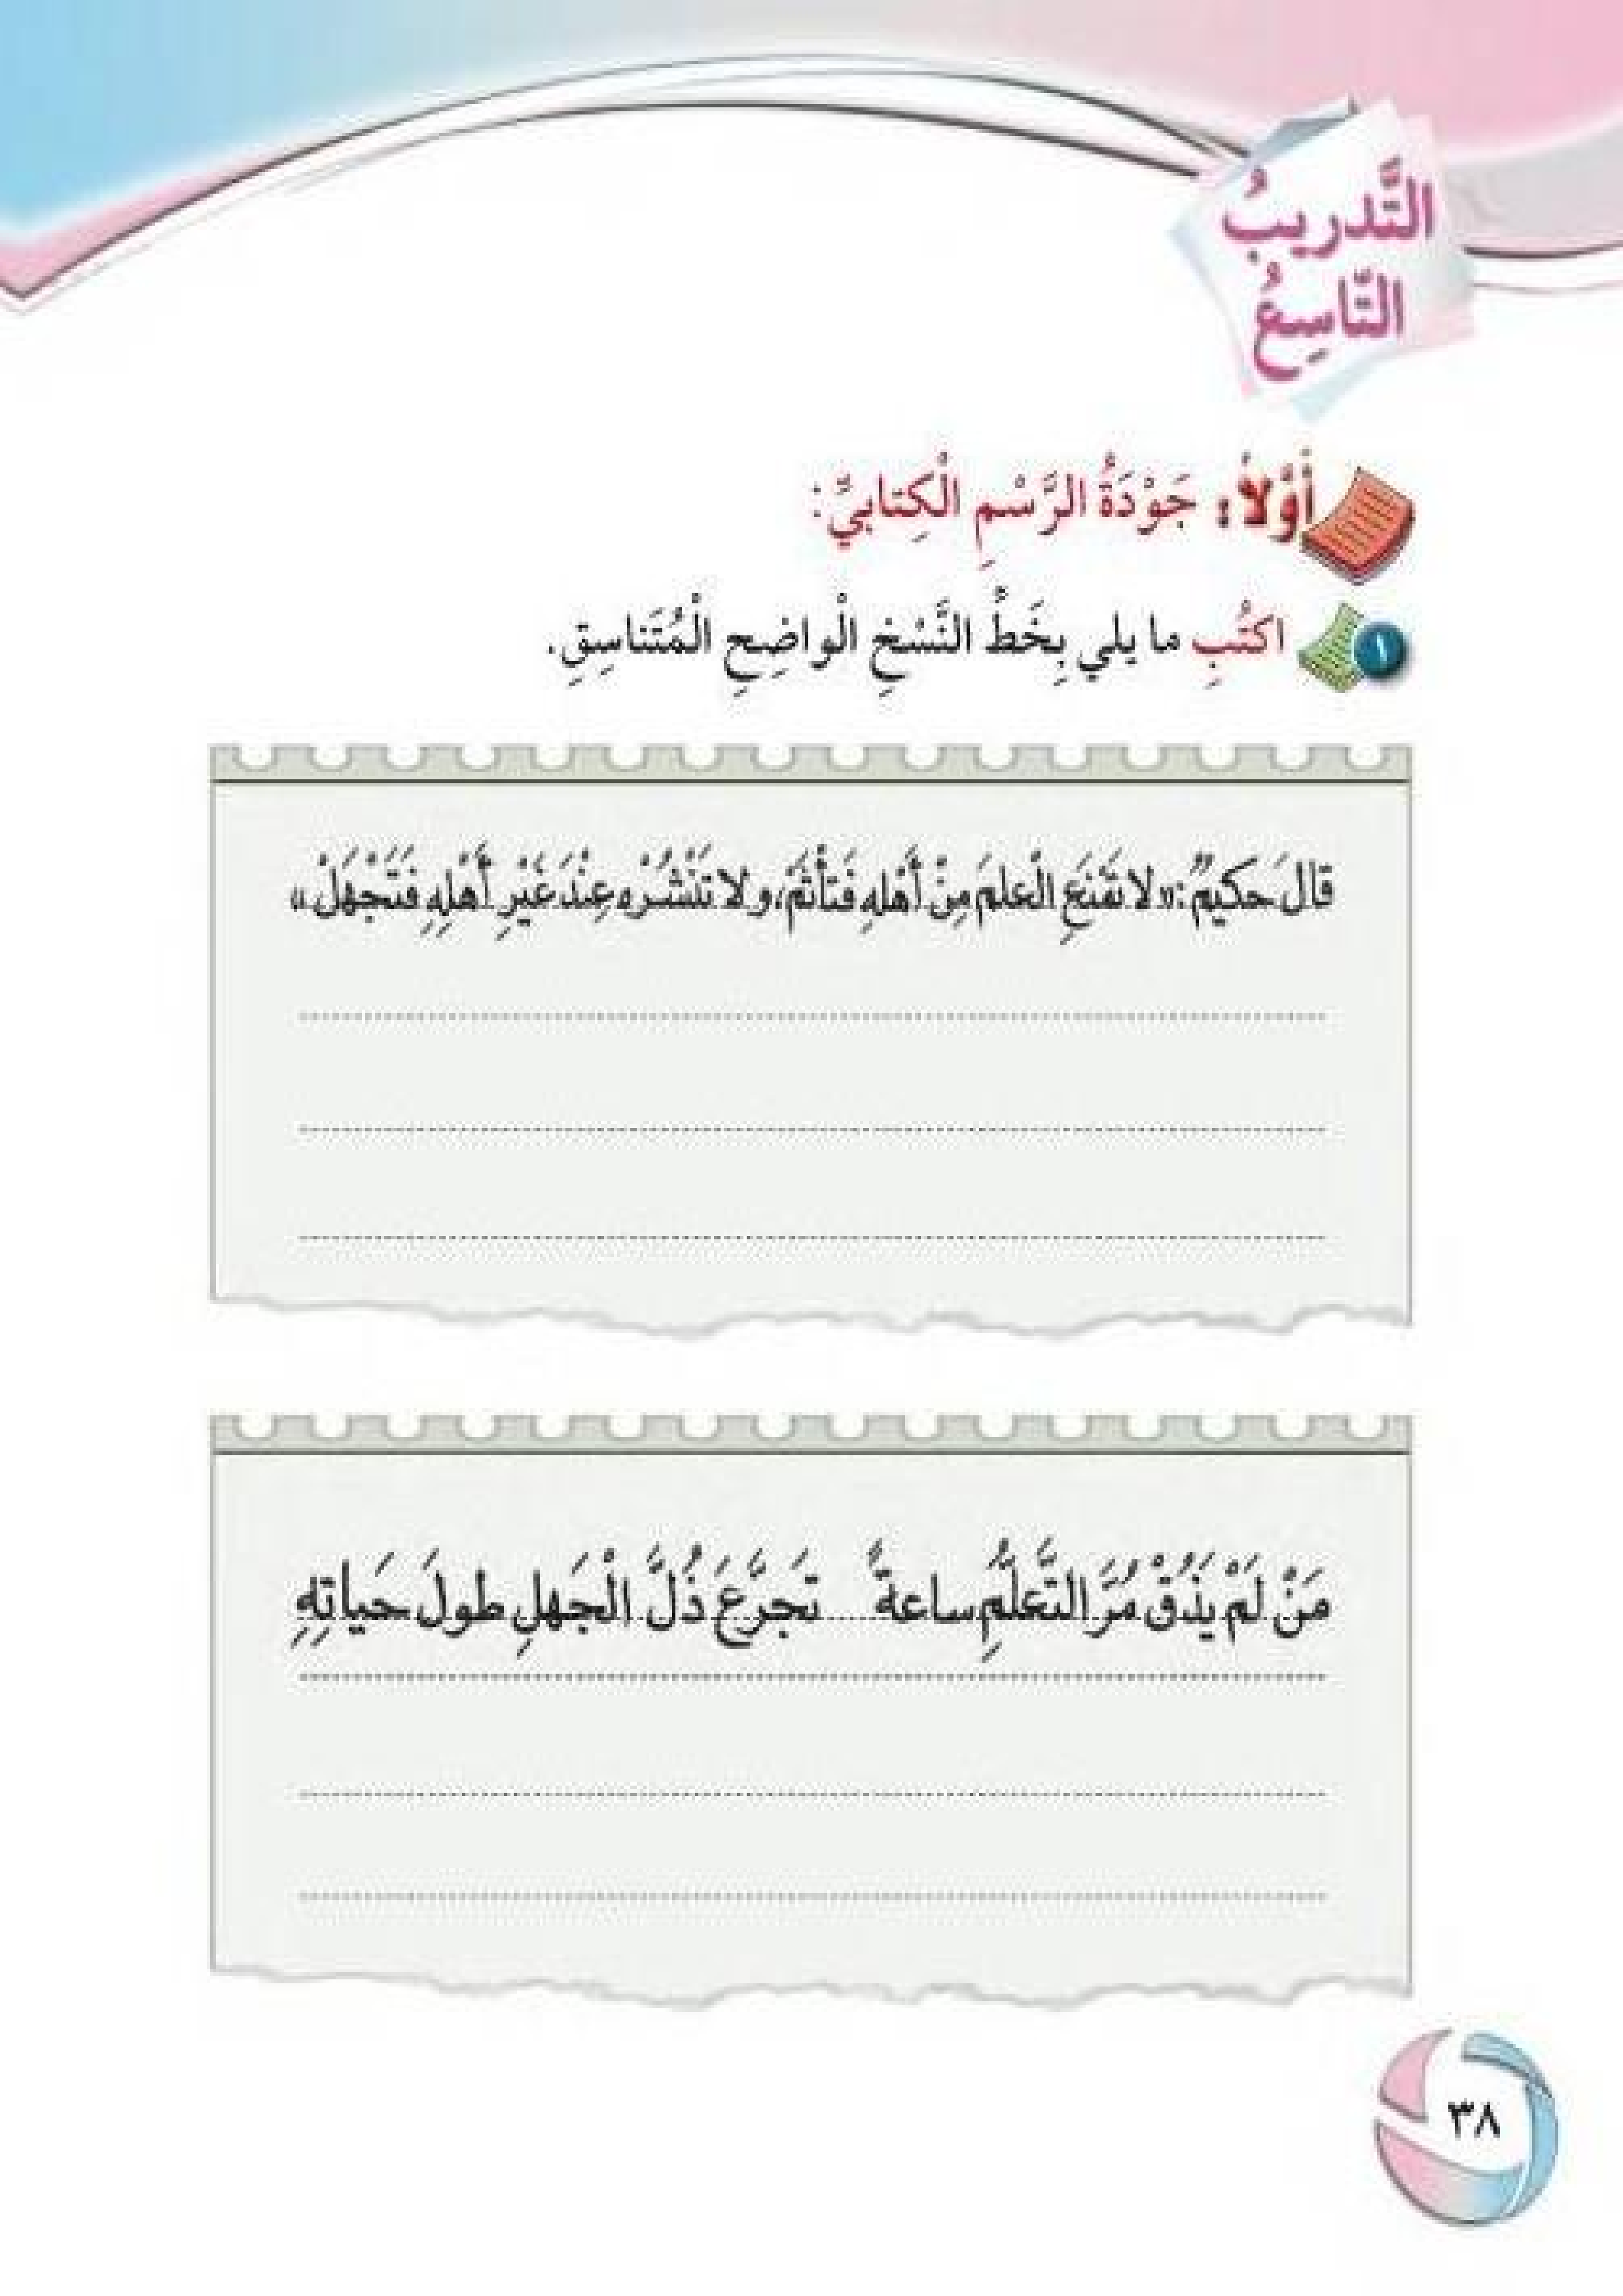 التَّدريبُ
التّاسِعُ
أَوَّلاً: جَوْدَةُ الرَّسْمِ الْكِتابيِّ:
١ اكتُبِ ما يلي بِخَطِّ النَّسْخِ الْواضِحِ الْمُتَناسِقِ.
قالَ حَكيمٌ: «لا تَمْنَعِ الْعلمَ مِنْ أَهْلهِ فَتَأْثَمَ، ولا تَنْشُرْه عِنْدَ غَيْرِ أَهْلِهِ فَتَجْهَلْ»
مَنْ لَمْ يَذُقْ مُرَّ التَّعَلُّمِ ساعةً تَجَرَّعَ ذُلَّ الْجَهلِ طولَ حَياتِهِ
٣٨